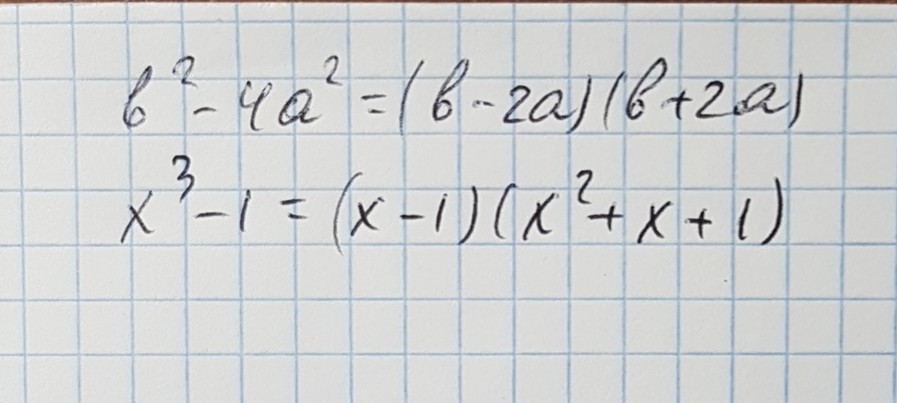 b² - 4a² = (b - 2a)(b + 2a)
x³ - 1 = (x - 1)(x² + x + 1)